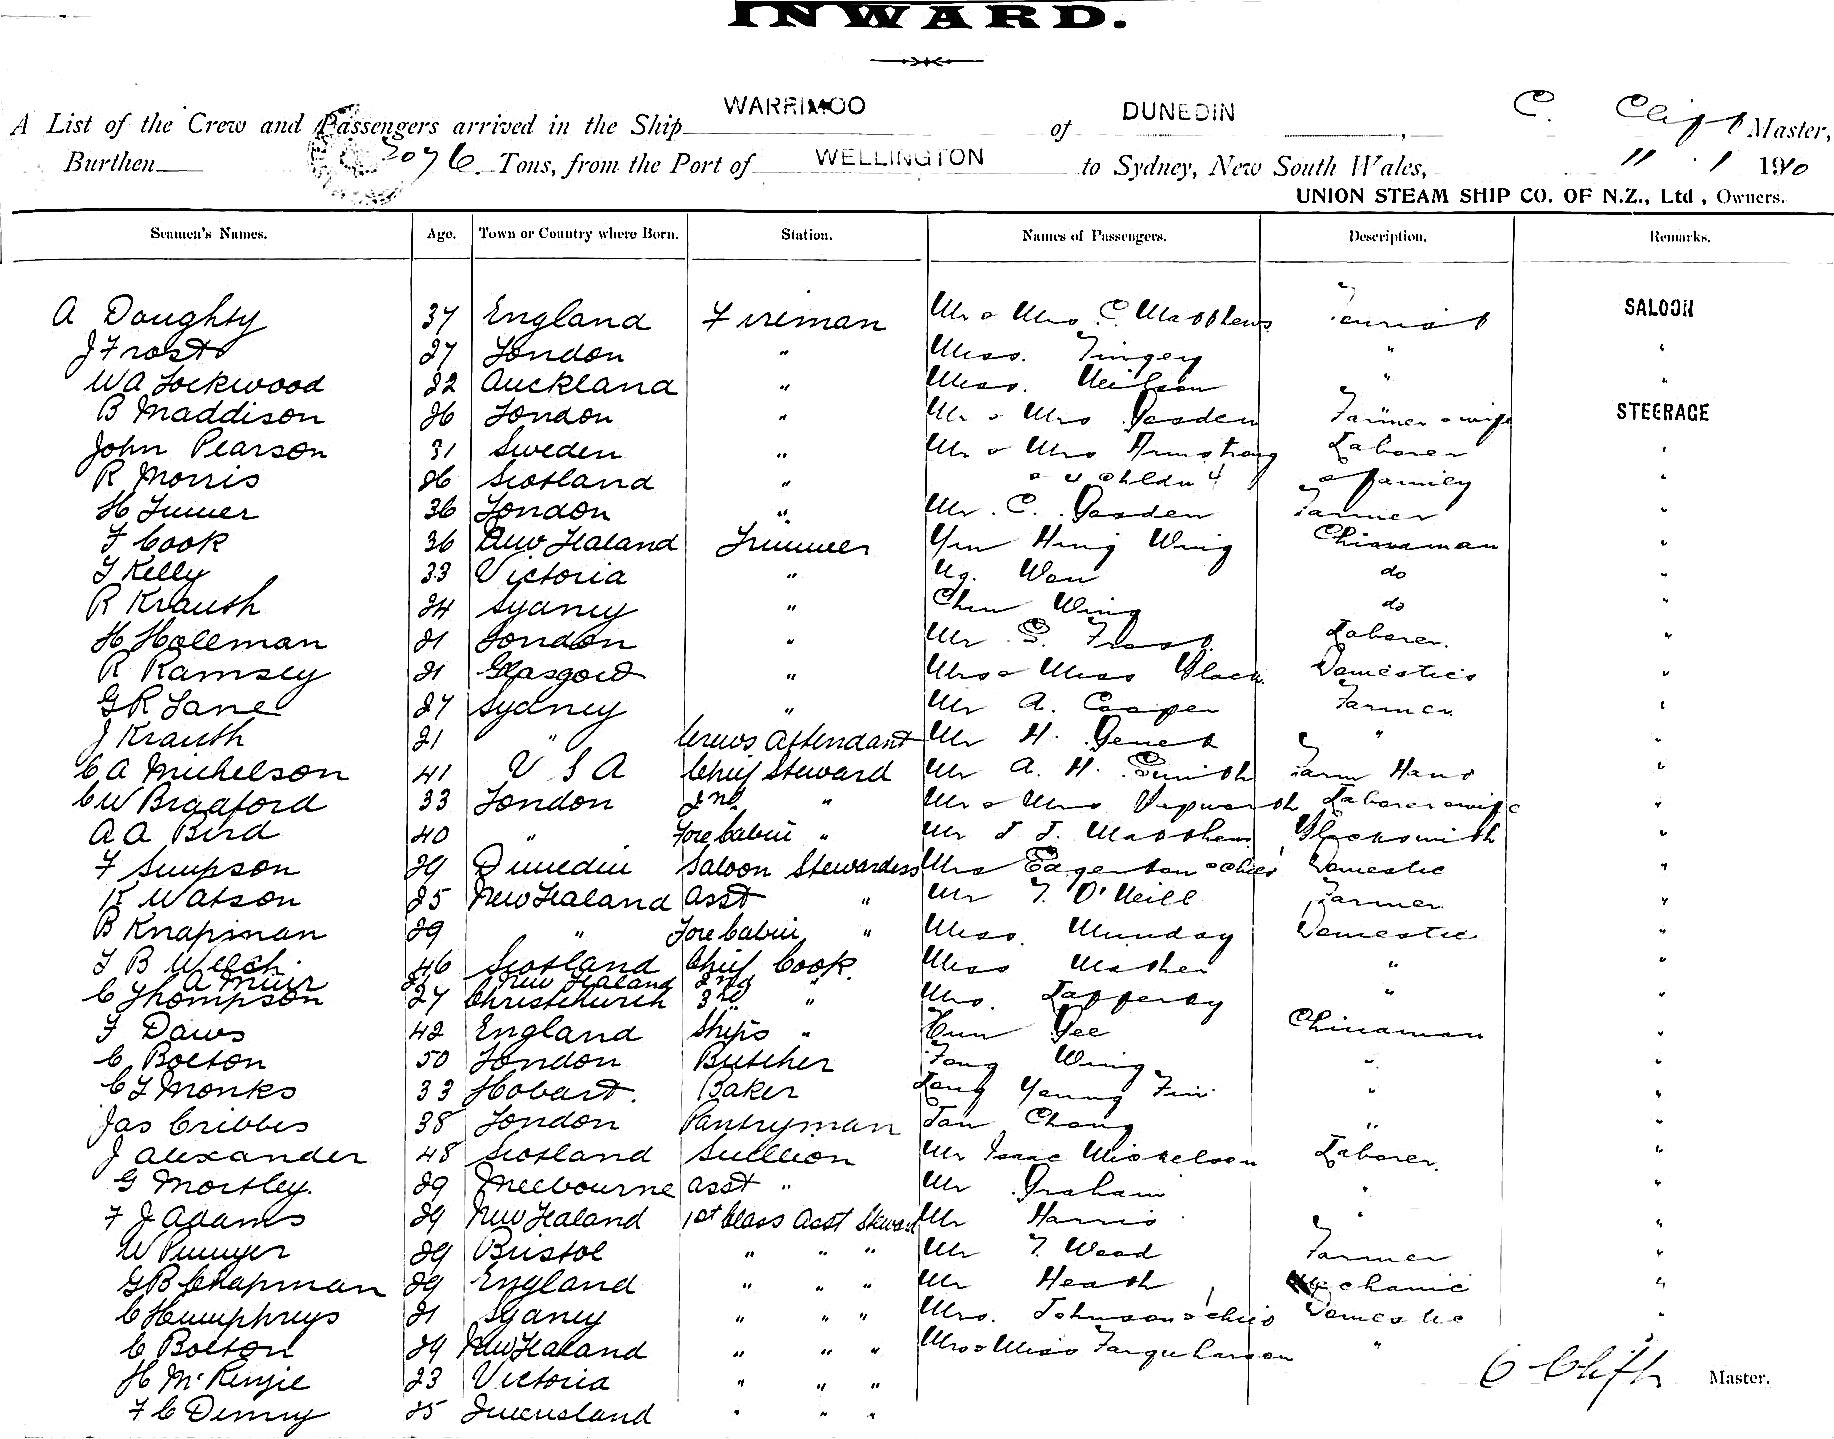 INWARD.
A List of the Crew and Passengers arrived in the Ship WARRIMOO of DUNEDIN, C. Clift Master,
Burthen 3076 Tons, from the Port of WELLINGTON to Sydney, New South Wales, " 1 1910
UNION STEAM SHIP CO. OF N.Z., Ltd, Owners.
Seamen's Names. Age. Town or Country where Born. Station. Names of Passengers. Description. Remarks.
A Doughty 37 England Fireman Mr & Mrs C. Matthews Tourist SALOON
J Frost 27 London " Miss. Tingey " "
W A Lockwood 22 Auckland " Miss. Neilson " "
B Maddison 26 London " Mr & Mrs Farmer & wife STEERAGE
John Pearson 31 Sweden " Mr & Mrs Armstrong Laborer "
R Morris 26 Scotland " & 4 & family "
H Turner 36 London " Mr. C. Farmer "
F Cook 36 New Zealand Trimmer Hing Wing Chinaman "
T Kelly 33 Victoria " do "
R Krauth 24 Sydney " Wing do "
H Holleman 21 London " Mr Frost Laborer. "
R Ramsey 21 Glasgow " Mrs & Miss Black Domestics "
G R Lane 27 Sydney " Mr A. Cooper Farmer "
J Krauth 21 " Crews Attendant Mr H. " "
C A Michelson 41 U S A Chief Steward Mr A. H. Smith Farm Hand "
C W Bradford 33 London 2nd " Mr & Mrs Laborer & wife "
A A Bird 40 " Fore Cabin " Mr Matthews Blacksmith "
F Simpson 29 Dunedin Saloon Stewardess Mrs Egerton & child Domestic "
K Watson 25 New Zealand Asst " Mr T. O'Neill Farmer "
B Knapman 29 " Fore Cabin " Miss. Munday Domestic "
T B Welch 46 Scotland Chief Cook. Miss Mather " "
A Muir New Zealand 2nd
C Thompson 27 Christchurch 3rd " Mrs. Lafferty " "
F Daws 42 England Ships " Chinaman "
C Bolton 50 London Butcher Fong Wing " "
C T Monks 33 Hobart. Baker Young " "
Jas Cribbes 38 London Pantryman Chong " "
J Alexander 48 Scotland Scullion Mr Isaac Mickelson Laborer. "
G Mortley. 29 Melbourne Asst " Mr Graham " "
F J Adams 29 New Zealand 1st Class Asst Steward Mr Harris " "
W 29 Bristol " " " Mr T. Wood Farmer "
G B Chapman 29 England " " " Mr Heath Mechanic "
C Humphreys 21 Sydney " " " Mrs. Johnson & child Domestic "
C Bolton 24 New Zealand " " " Mrs & Miss Farquharson " "
H McKenzie 23 Victoria " " " C Clift Master.
F C Denny 25 Queensland " " "